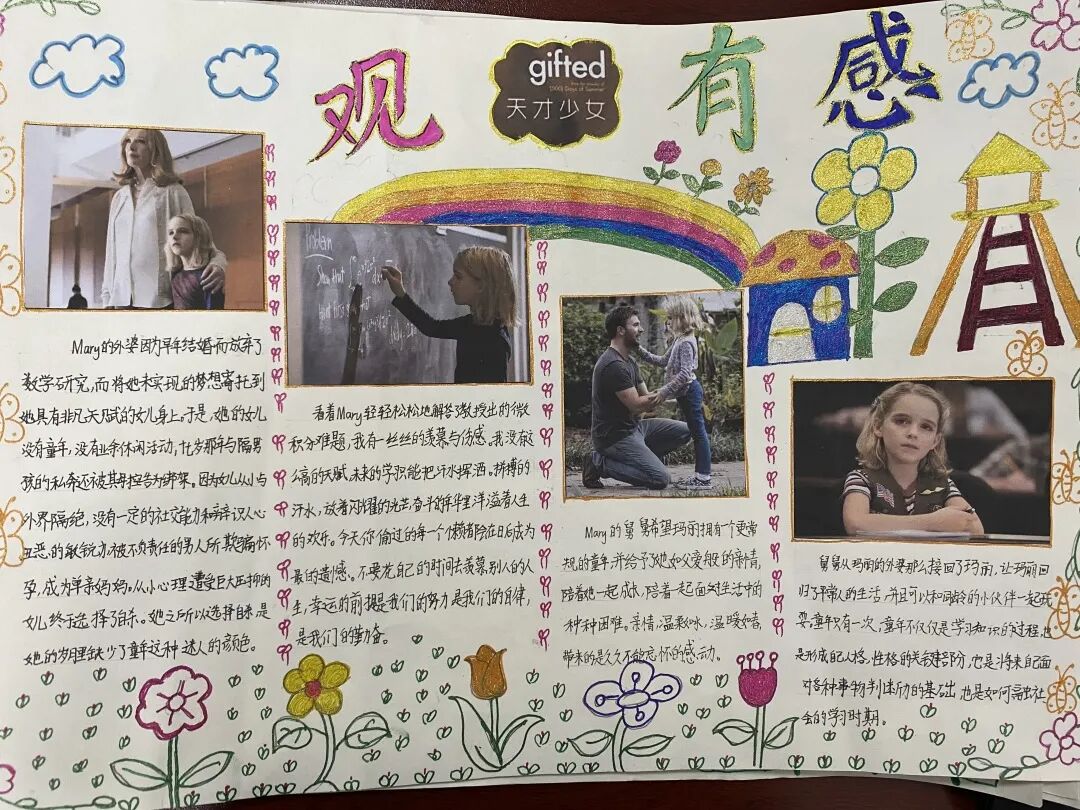 观
gifted
天才少女
有
感
Mary的外婆因为早年结婚而放弃了
数学研究,而将她未实现的梦想寄托到
她具有非凡天赋的女儿身上,于是,她的女儿
没有童年,没有业余休闲活动,十七岁那年与隔男
孩的私奔还被其母控告为绑架。因为女儿从小与
外界隔绝,没有一定的社交能力和辨识人心
丑恶的敏锐,亦被不负责任的男人所欺骗怀
孕,成为单亲妈妈,从小心理遭受巨大压抑的
女儿终于选择了自杀。她之所以选择自杀,是
她的岁月里缺少了童年这种迷人的颜色。
Problem
Show that
看着Mary轻轻松松地解答教授出的微
积分难题,我有一丝丝的羡慕与伤感。我没有这
么高的天赋,未来的学识能把汗水挥洒。拼搏的
汗水,放着闪耀的光芒,奋斗的年华里洋溢着人生
的欢乐。今天你偷过的每一个懒都会在日后成为
最的遗憾。不要龙自己的时间去羡慕别人的人
生,幸运的前提是我们的努力,是我们的自律,
是我们的勤奋。
Mary的舅舅希望玛丽拥有个更常
规的童年,并给予她如父爱般的亲情,
陪着她一起成长,陪着一起面对生活中的
种种困难。亲情,温氵水,温暖如春,
带来的是久久不能忘怀的感动。
舅舅从玛丽的外婆那么接回了玛丽,让玛丽回
归了平常人的生活,并且可以和同龄的小伙伴一起玩
耍。童年只有一次,童年不仅仅是学习知识的过程,也
是形成自己人格,性格的关键部分,也是将来自己面
对各种事物判断力的基础,也是如何融入社
会的学习时期。